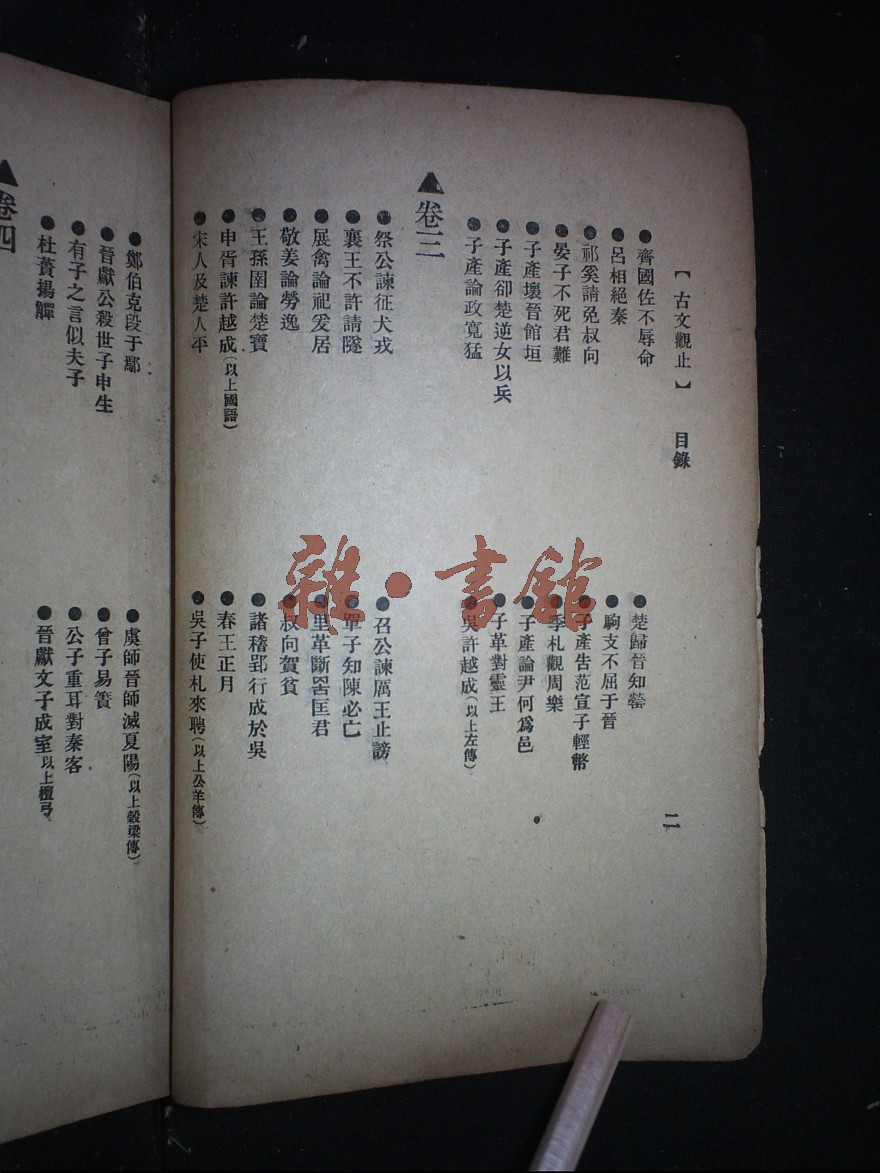 【古文觀止】 目錄 二
●齊國佐不辱命 ●楚歸晉知罃
●呂相絕秦 ●駒支不屈于晉
●祁奚請免叔向 ●子產告范宣子輕幣
●晏子不死君難 ●季札觀周樂
●子產壞晉館垣 ●子產論尹何爲邑
●子產卻楚逆女以兵 ●子革對靈王
●子產論政寬猛 ●吳許越成(以上左傳)
▲卷三
●祭公諫征犬戎 ●召公諫厲王止謗
●襄王不許請隧 ●單子知陳必亡
●展禽論祀爰居 ●里革斷罟匡君
●敬姜論勞逸 ●叔向賀貧
●王孫圉論楚寶 ●諸稽郢行成於吳
●申胥諫許越成(以上國語) ●春王正月
●宋人及楚人平 ●吳子使札來聘(以上公羊傳)
●鄭伯克段于鄢 ●虞師晉師滅夏陽(以上穀梁傳)
●晉獻公殺世子申生 ●曾子易簀
●有子之言似夫子 ●公子重耳對秦客
●杜蕢揚觶 ●晉獻文子成室以上檀弓
▲卷四
雜·書館